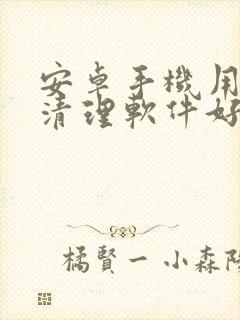 安卓手機用
清理軟件好
橘賢一 小森陽